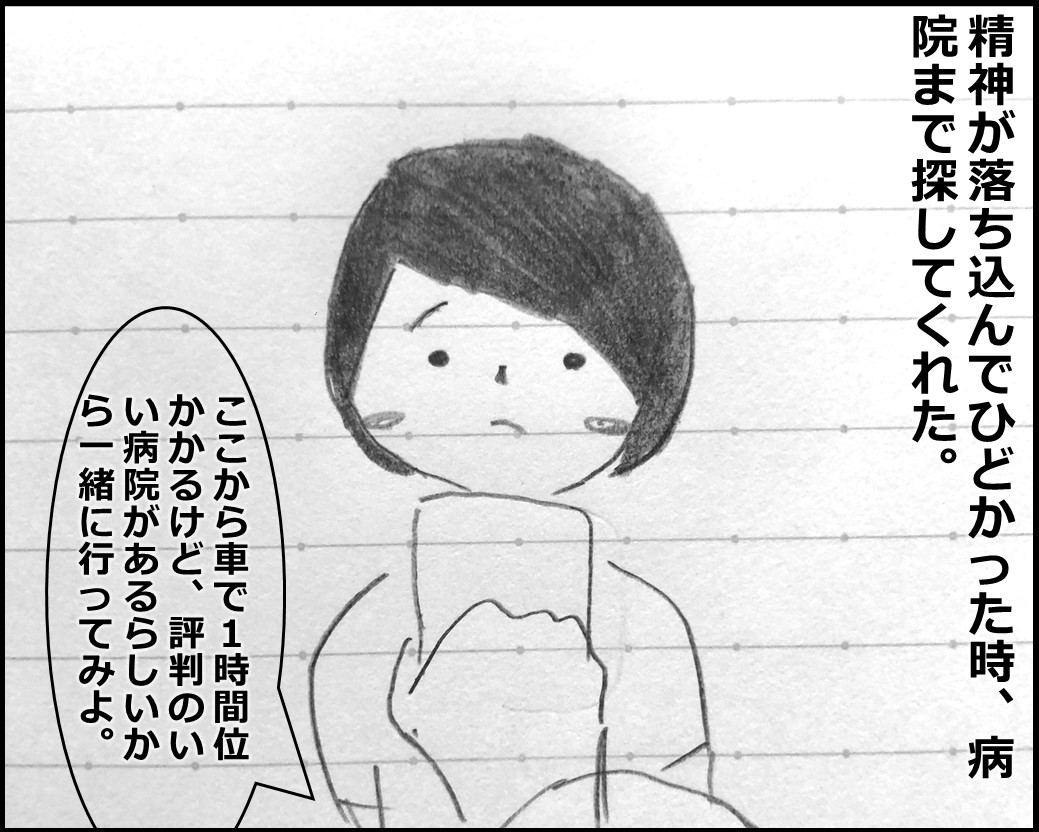 精神が落ち込んでひどかった時、病
院まで探してくれた。
ここから車で1時間位
かかるけど、評判のい
い病院があるらしいか
ら一緒に行ってみよ。